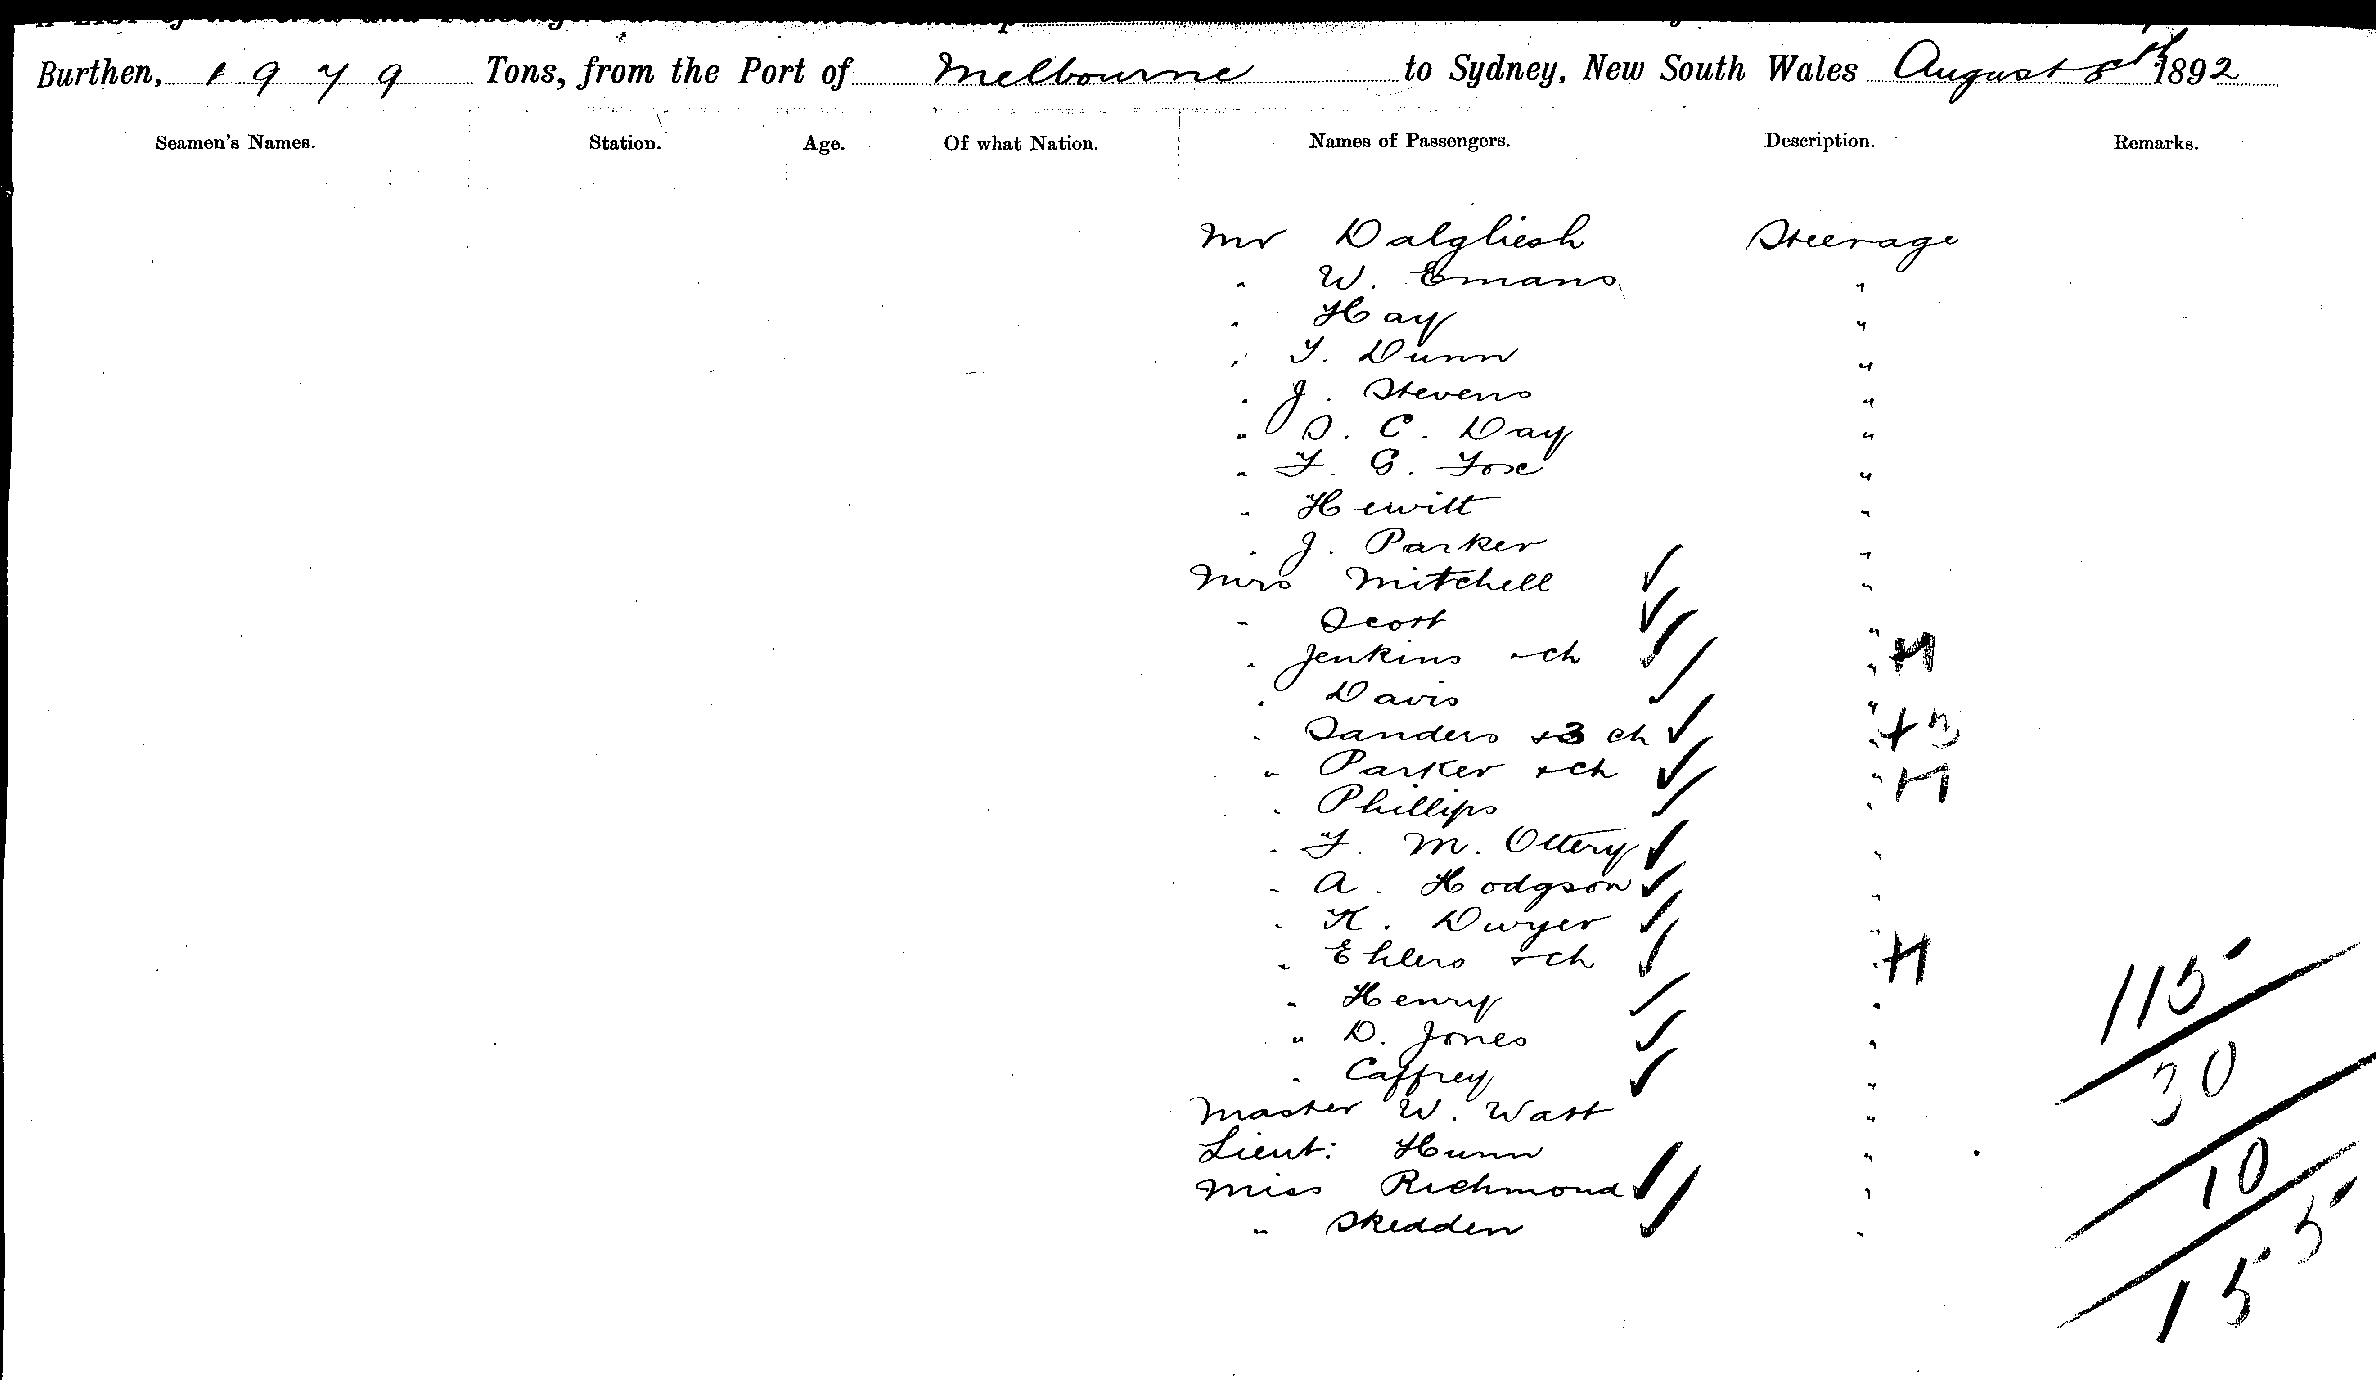 Burthen, 1979 Tons, from the Port of Melbourne to Sydney, New South Wales August 8th 1892
Seamen's Names. Station. Age. Of what Nation. Names of Passengers. Description. Remarks.
Mr Dalgliesh Steerage
" W. Emans "
" Hay "
" T. Dunn "
" J. Stevens "
" S. C. Day "
" F. G. Fox "
" Hewitt "
" J. Parker "
Mrs Mitchell ✓ "
" Scott ✓ "
" Jenkins + ch ✓ " +1
" Davis ✓ "
" Sanders + 3 ch ✓ " +3
" Parker + ch ✓ " +1
" Phillips ✓ "
" F. M. Ottery ✓ "
" A. Hodgson ✓ "
" K. Dwyer ✓ "
" Ehlers + ch ✓ " +1
" Henry ✓ "
" D. Jones ✓ "
" Caffrey ✓ "
Master W. Watt "
Lieut: Hunn "
Miss Richmond ✓ "
" Skedden ✓ "
115
30
10
155